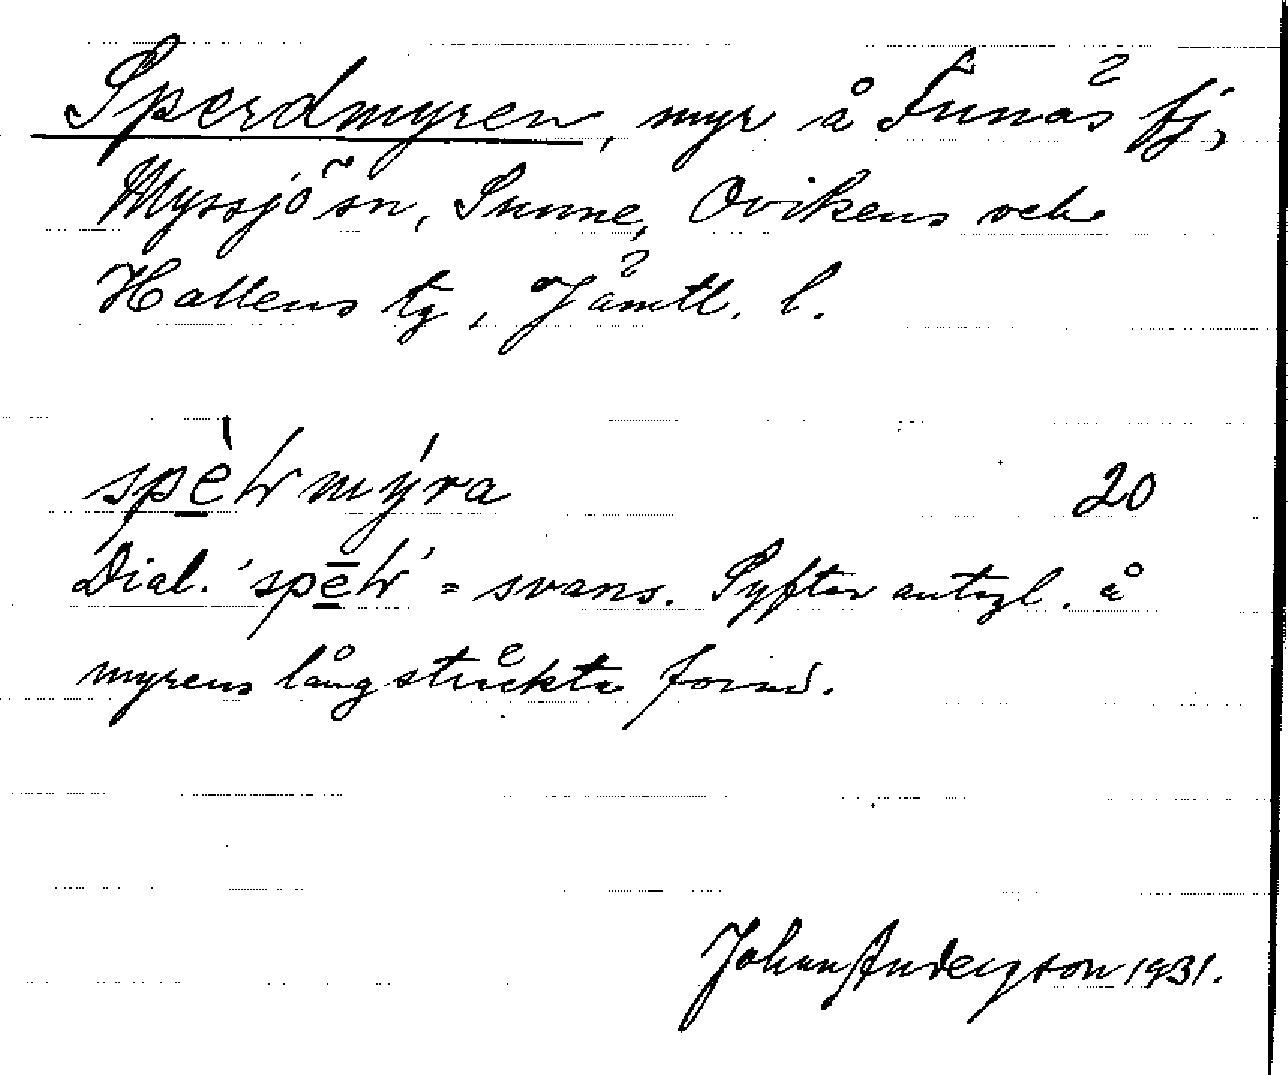 Sperdmyren, myr å Funäs fj,
Myssjö sn, Sunne, Ovikens och
Hallens tg, Jämtl. l.
spèʈʈmýra 20
Dial. 'spēʈʈ' = svans. Syftar antagl. å
myrens långsträckta form.
Johan Anderson 1931.